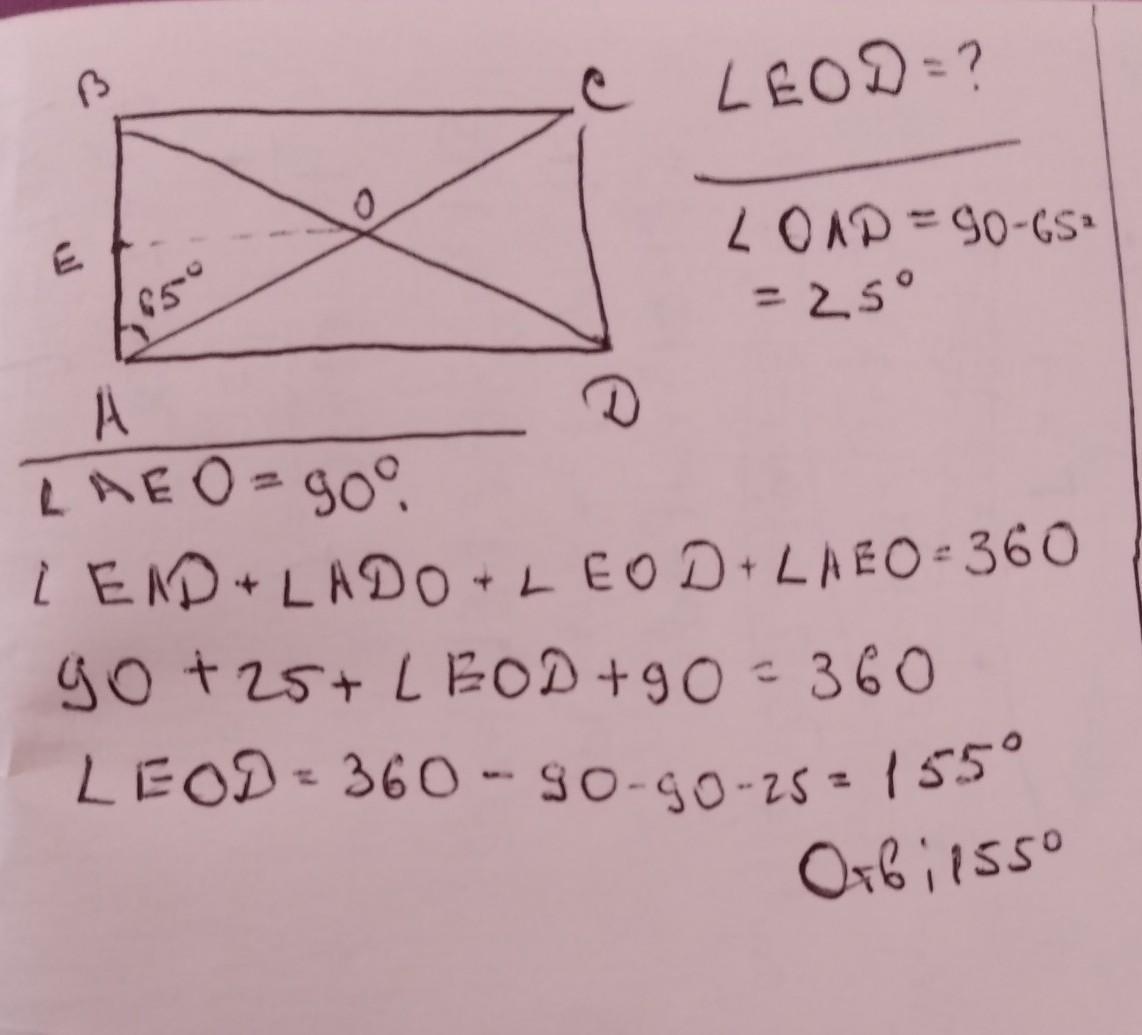 B
C
∠EOD = ?
O
∠OAD = 90-65=
= 25°
E
65°
A
D
∠AEO = 90°.
∠EAD + ∠ADO + ∠EOD + ∠AEO = 360
90 + 25 + ∠EOD + 90 = 360
∠EOD = 360 - 90 - 90 - 25 = 155°
Отв; 155°